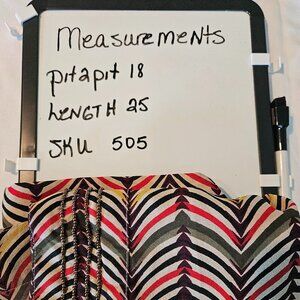 Measurements
pit2pit 18
LENGTH 25
SKU 505